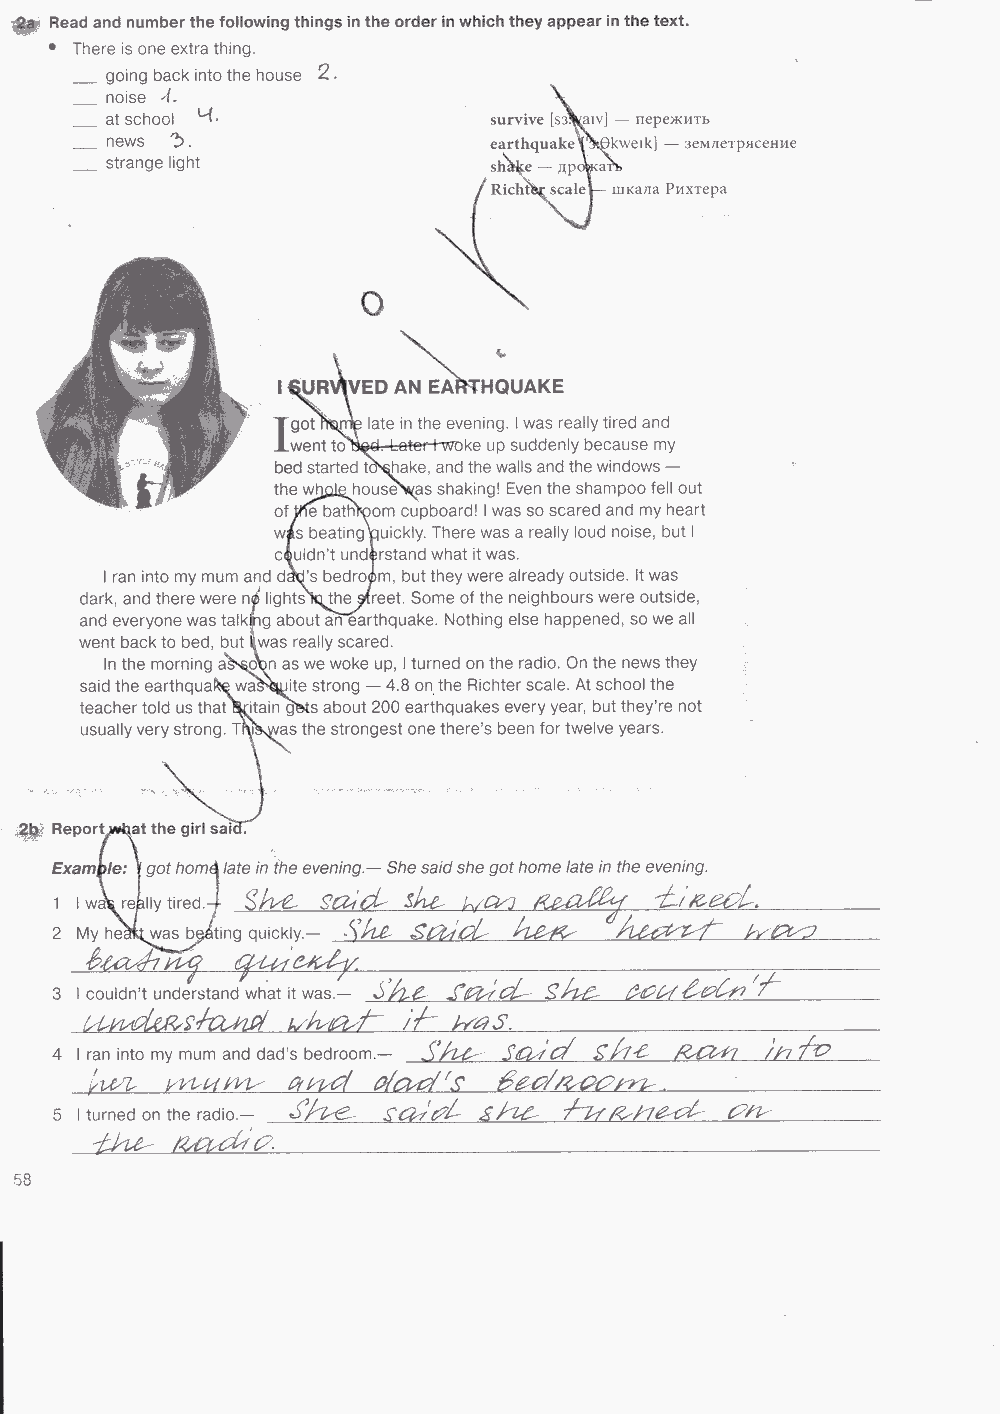 2a Read and number the following things in the order in which they appear in the text.
• There is one extra thing.
__ going back into the house 2.
__ noise 1.
__ at school 4.
__ news 3.
__ strange light
survive [sɜːvaɪv] — пережить
earthquake ['ɜːθkweɪk] — землетрясение
shake — дрожать
Richter scale — шкала Рихтера
I SURVIVED AN EARTHQUAKE
I got home late in the evening. I was really tired and
went to bed. Later I woke up suddenly because my
bed started to shake, and the walls and the windows —
the whole house was shaking! Even the shampoo fell out
of the bathroom cupboard! I was so scared and my heart
was beating quickly. There was a really loud noise, but I
couldn't understand what it was.
I ran into my mum and dad's bedroom, but they were already outside. It was
dark, and there were no lights in the street. Some of the neighbours were outside,
and everyone was talking about an earthquake. Nothing else happened, so we all
went back to bed, but I was really scared.
In the morning as soon as we woke up, I turned on the radio. On the news they
said the earthquake was quite strong — 4.8 on the Richter scale. At school the
teacher told us that Britain gets about 200 earthquakes every year, but they're not
usually very strong. This was the strongest one there's been for twelve years.
2b Report what the girl said.
Example: I got home late in the evening.— She said she got home late in the evening.
1 I was really tired.— She said she was really tired.
2 My heart was beating quickly.— She said her heart was
beating quickly.
3 I couldn't understand what it was.— She said she couldn't
understand what it was.
4 I ran into my mum and dad's bedroom.— She said she ran into
her mum and dad's bedroom.
5 I turned on the radio.— She said she turned on
the radio.
58